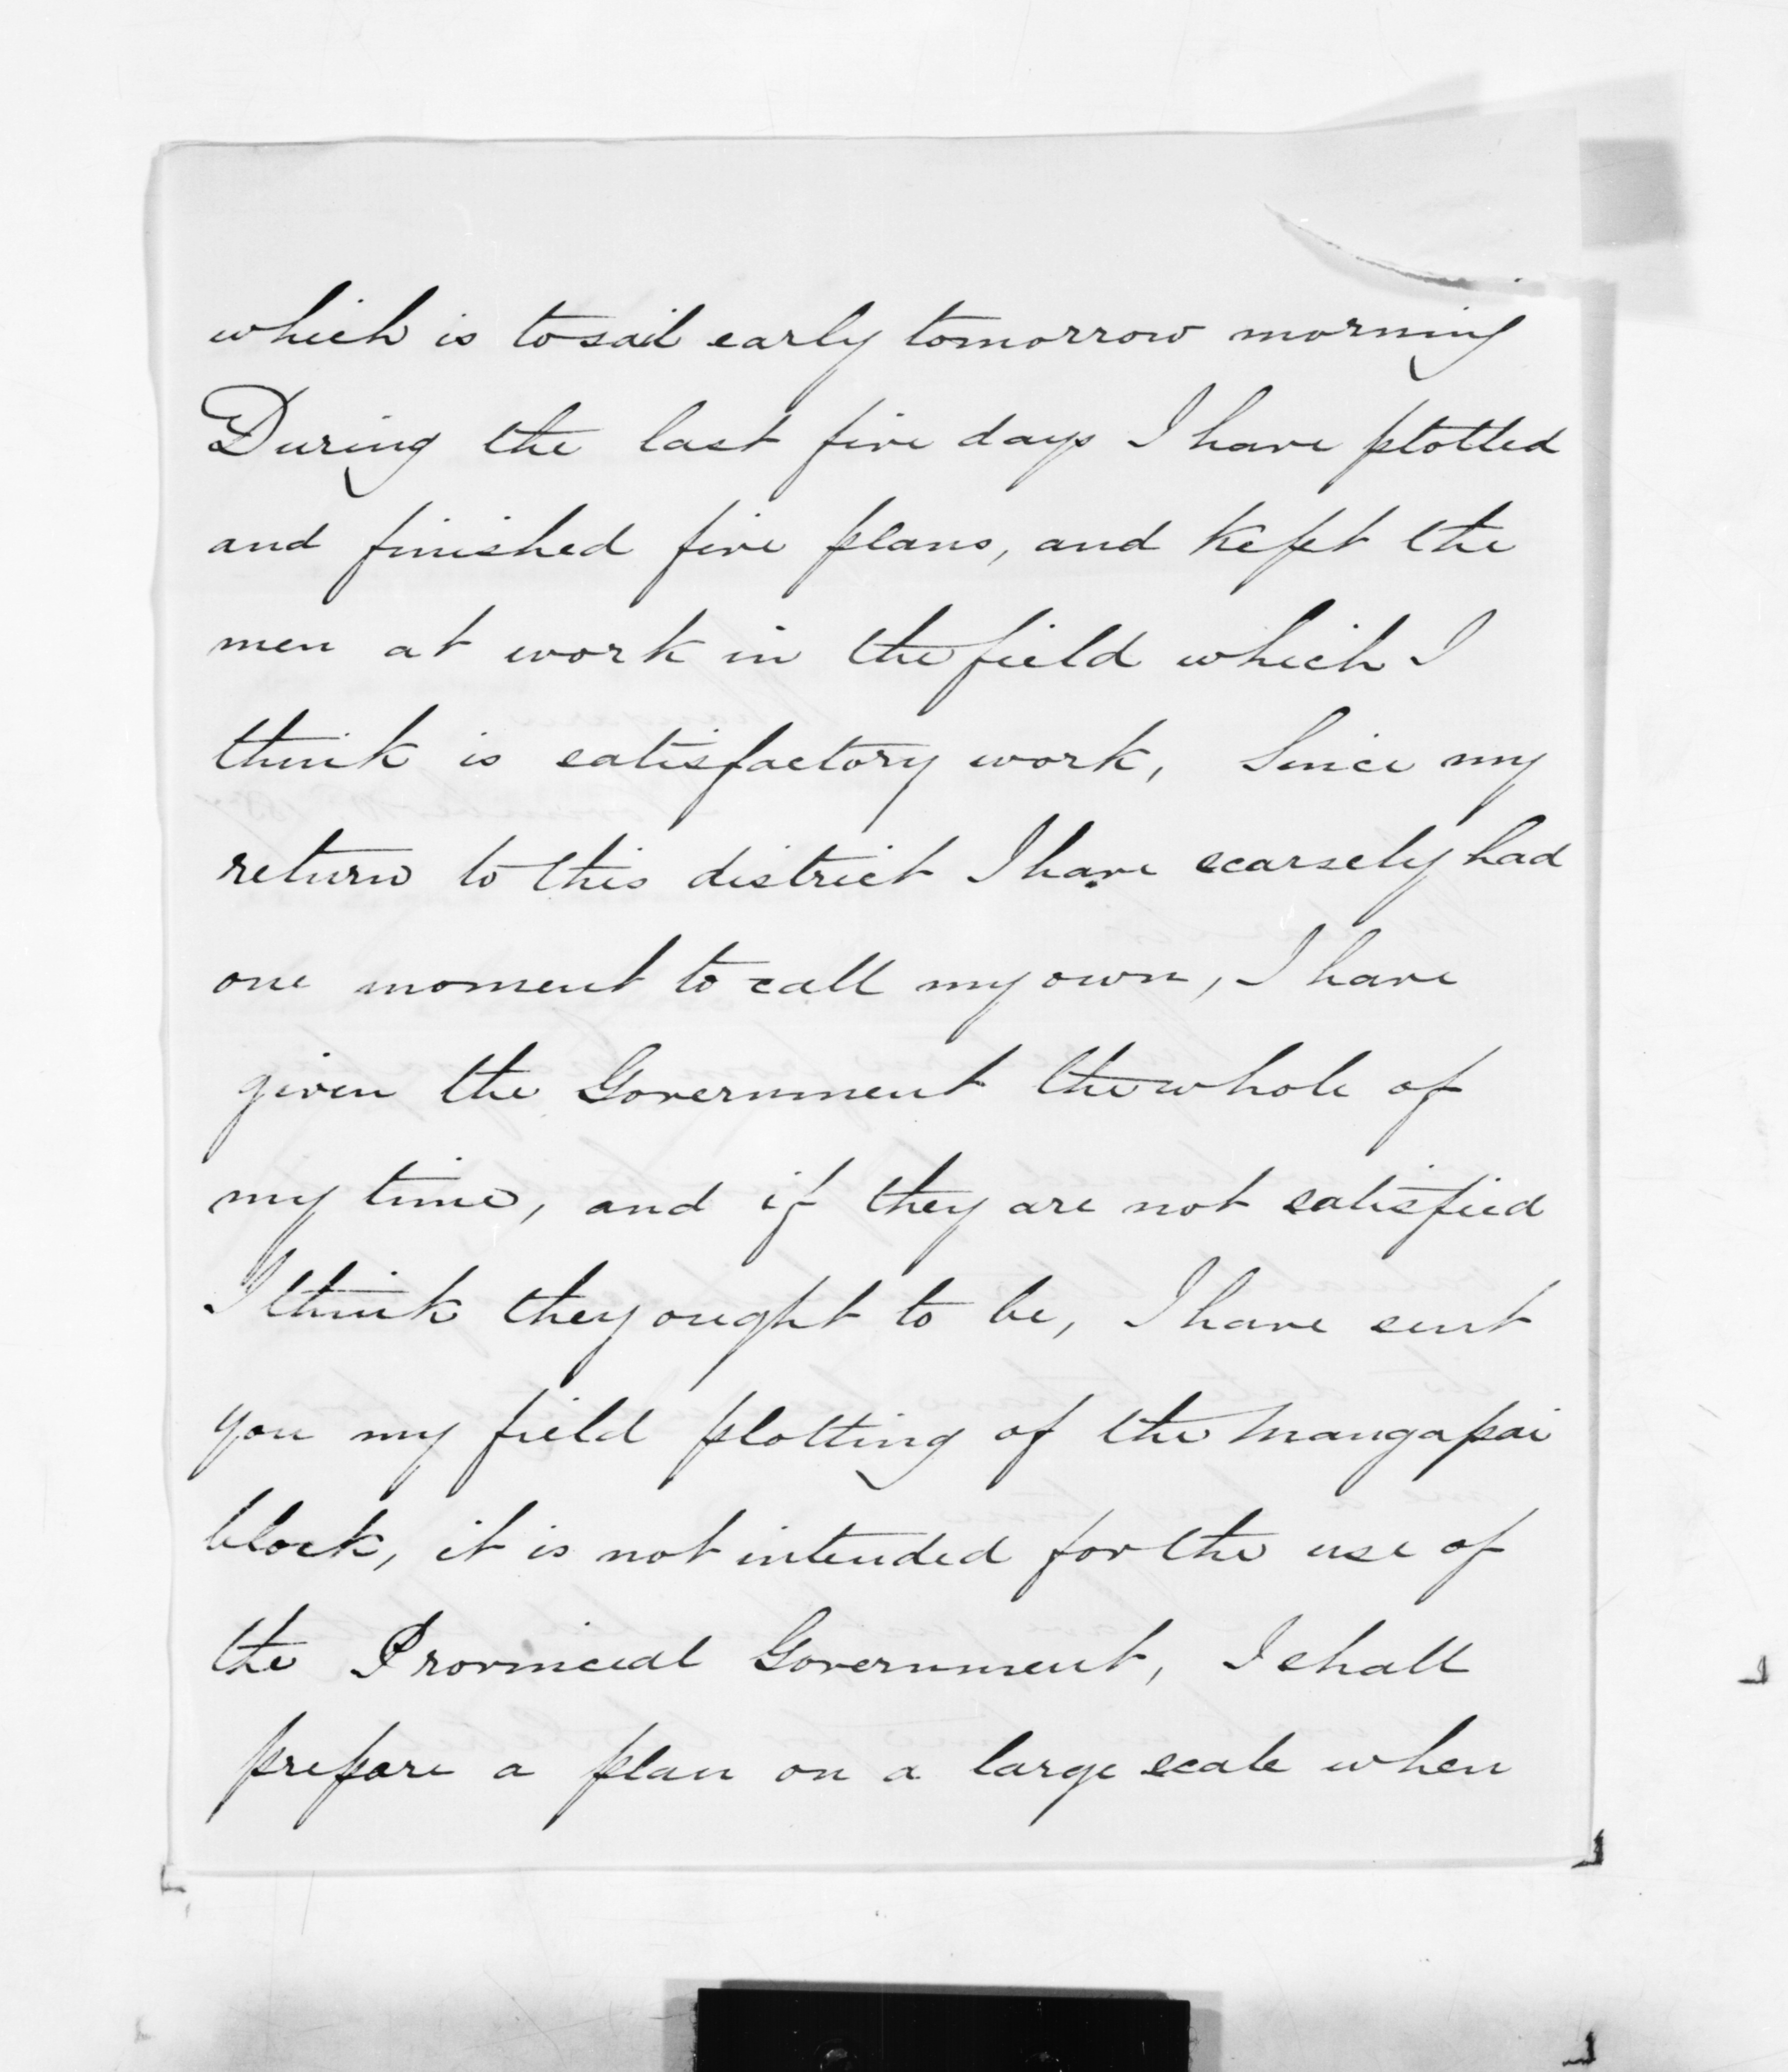 which is to sail early tomorrow morning
During the last five days I have plotted
and finished five plans, and kept the
men at work in the field which I
think is satisfactory work, Since my
return to this district I have scarsely had
one moment to call my own, I have
given the Government the whole of
my time, and if they are not satisfied
I think they ought to be, I have sent
you my field plotting of the Mangapai
block, it is not intended for the use of
the Provincial Government, I shall
prepare a plan on a large scale when